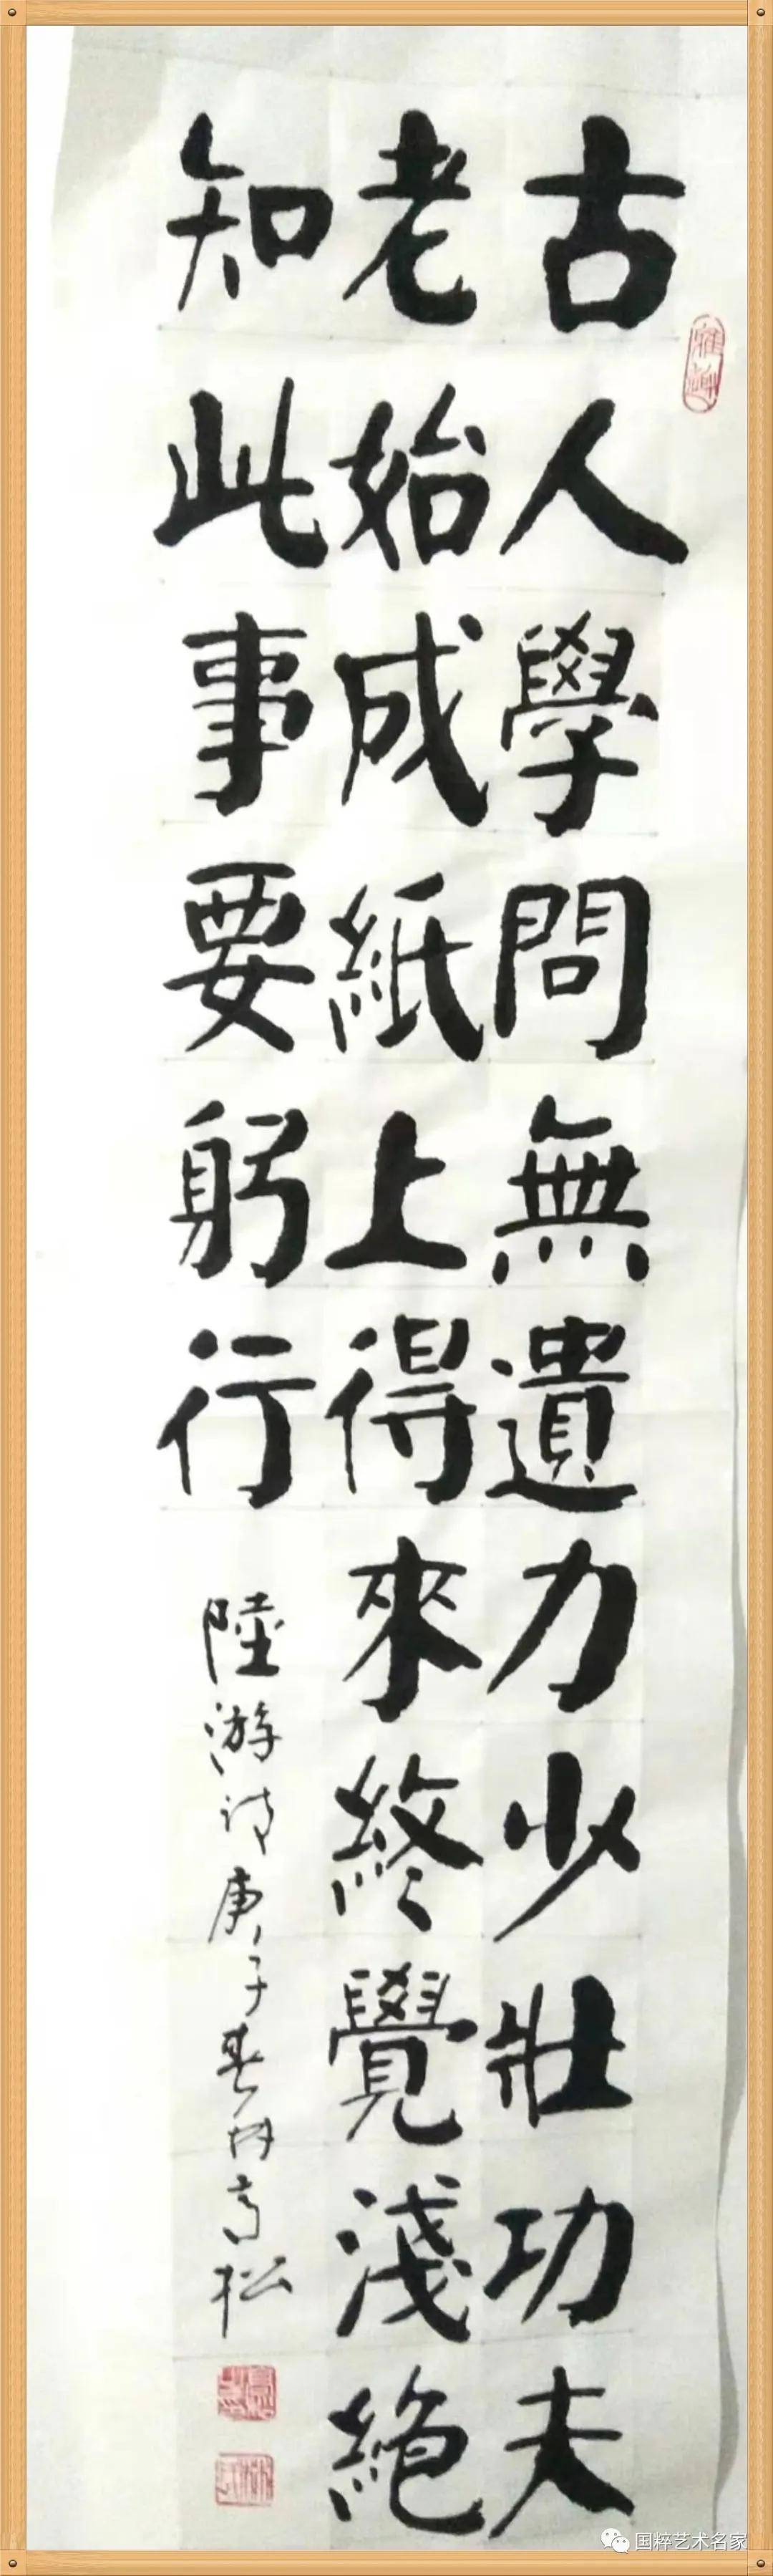 古人學問無遺力少壯功夫
老始成紙上得來終覺淺絶
知此事要躬行
陸游詩庚子春月高松
国粹艺术名家